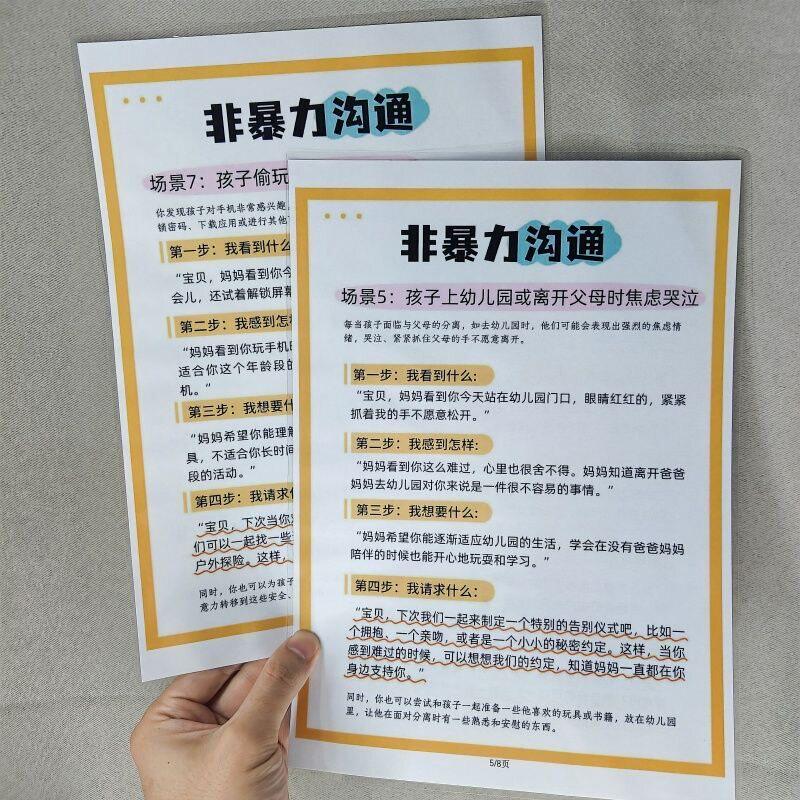 非暴力沟通
场景7：孩子偷玩
你发现孩子对手机非常感兴趣，
锁密码、下载应用或进行其他
第一步：我看到什么
“宝贝，妈妈看到你今
会儿，还试着解锁屏幕
第二步：我感到怎样
“妈妈看到你玩手机
适合你这个年龄段的
机。”
第三步：我想要什
“妈妈希望你能理解
具，不适合你长时间
段的活动。”
第四步：我请求什
“宝贝，下次当你
们可以一起找一些
户外探险。这样，
同时，你也可以为孩子
意力转移到这些安全、
非暴力沟通
场景5：孩子上幼儿园或离开父母时焦虑哭泣
每当孩子面临与父母的分离，如去幼儿园时，他们可能会表现出强烈的焦虑情
绪，哭泣、紧紧抓住父母的手不愿意离开。
第一步：我看到什么：
“宝贝，妈妈看到你今天站在幼儿园门口，眼睛红红的，紧紧
抓着我的手不愿意松开。”
第二步：我感到怎样：
“妈妈看到你这么难过，心里也很舍不得。妈妈知道离开爸爸
妈妈去幼儿园对你来说是一件很不容易的事情。”
第三步：我想要什么：
“妈妈希望你能逐渐适应幼儿园的生活，学会在没有爸爸妈妈
陪伴的时候也能开心地玩耍和学习。”
第四步：我请求什么：
“宝贝，下次我们一起来制定一个特别的告别仪式吧，比如一
个拥抱、一个亲吻，或者是一个小小的秘密约定。这样，当你
感到难过的时候，可以想想我们的约定，知道妈妈一直都在你
身边支持你。”
同时，你也可以尝试和孩子一起准备一些他喜欢的玩具或书籍，放在幼儿园
里，让他在面对分离时有一些熟悉和安慰的东西。
5/8页